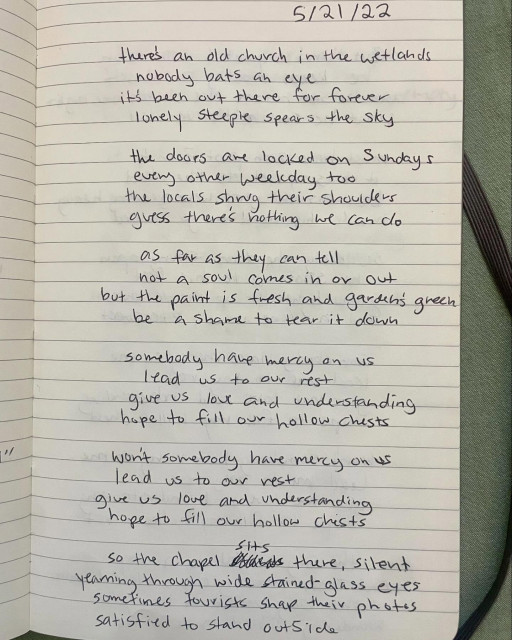 5/21/22
there's an old church in the wetlands
nobody bats an eye
it's been out there for forever
lonely steeple spears the sky
the doors are locked on Sundays
every other weekday too
the locals shrug their shoulders
guess there's nothing we can do
as far as they can tell
not a soul comes in or out
but the paint is fresh and garden's green
be a shame to tear it down
somebody have mercy on us
lead us to our rest
give us love and understanding
hope to fill our hollow chests
"
won't somebody have mercy on us
lead us to our rest
give us love and understanding
hope to fill our hollow chests
so the chapel sits there, silent
yearning through wide stained-glass eyes
sometimes tourists snap their photos
satisfied to stand outside